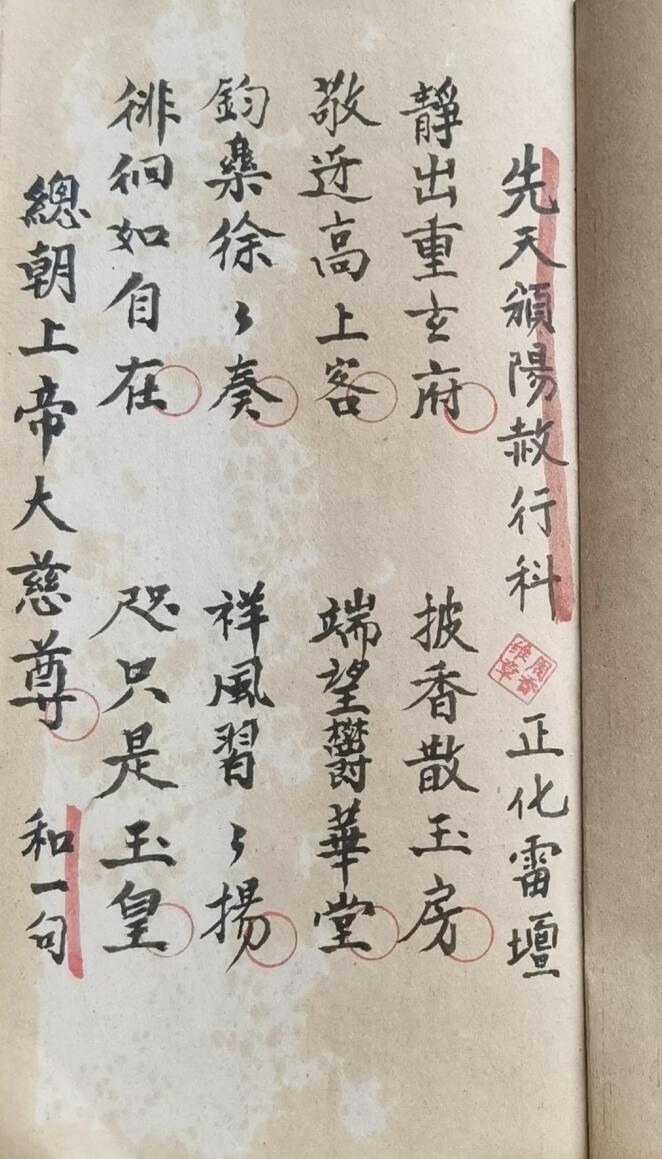 先天頒陽赦行科 正化雷壇
靜出重玄府 披香散玉房
敬迓高上客 端望欝華堂
鈞樂徐々奏 祥風習々揚
徘徊如自在 咫只是玉皇
總朝上帝大慈尊 和一句